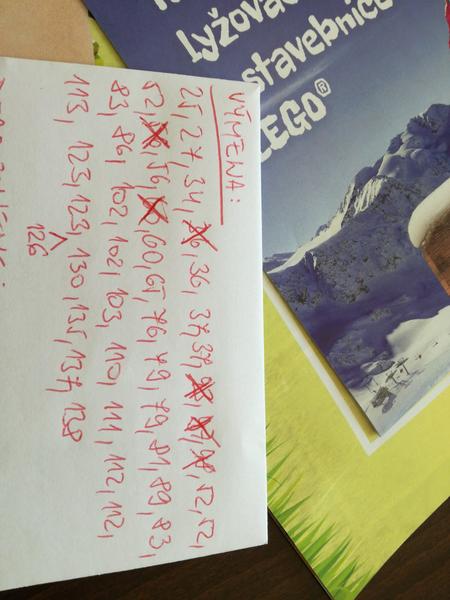 VÝMENA:
25, 27, 34, 36, 36, 37, 37, 52, 52,
52, 56, 60, 65, 76, 79, 79, 81, 89, 83,
83, 86, 102, 102, 103, 110, 111, 112, 112,
113, 123, 123, 130, 135, 137, 138
126
Lyžova
stavebnice
LEGO®